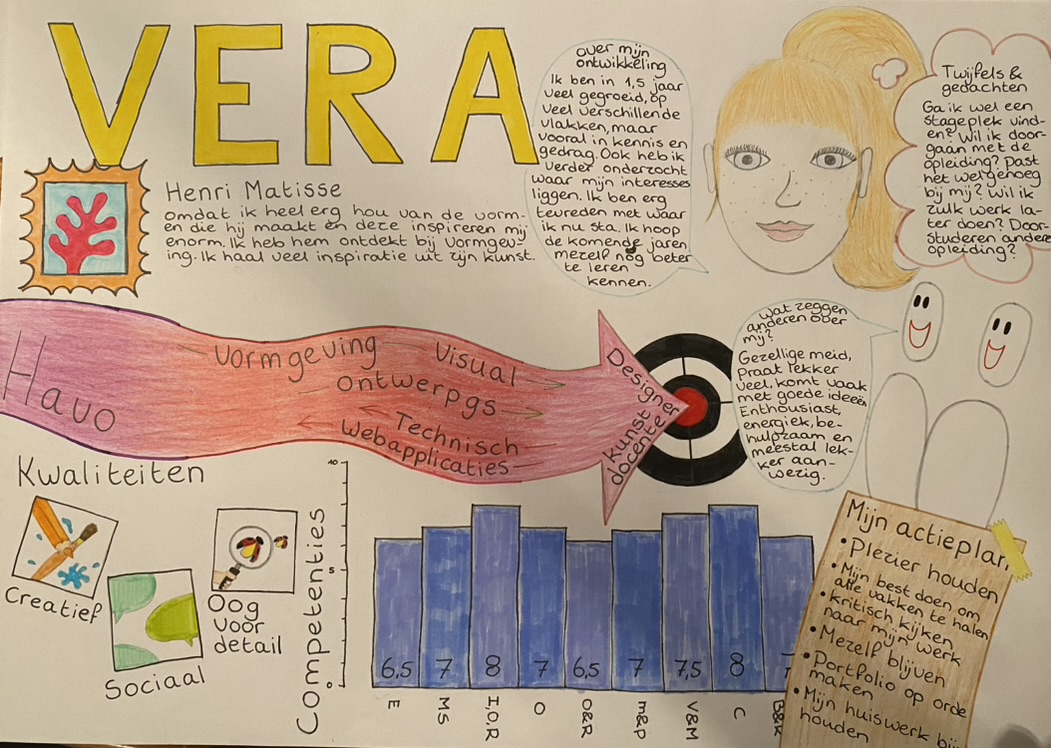 VERA
Henri Matisse
omdat ik heel erg hou van de vorm-
en die hij maakt en deze inspireren mij
enorm. Ik heb hem ontdekt bij vormgev-
ing. Ik haal veel inspiratie uit zijn kunst.
over mijn
ontwikkeling
Ik ben in 1,5 jaar
veel gegroeid, op
veel verschillende
vlakken, maar
vooral in kennis en
gedrag. Ook heb ik
verder onderzocht
waar mijn interesses
liggen. Ik ben erg
tevreden met waar
ik nu sta. Ik hoop
de komende jaren
mezelf nog beter
te leren
kennen.
Twijfels &
gedachten
Ga ik wel een
stageplek vind-
en? Wil ik door-
gaan met de
opleiding? Past
het wel genoeg
bij mij? Wil ik
zulk werk la-
ter doen? Door-
studeren andere
opleiding?
Havo
Vormgeving
Visual
ontwerpgs
Technisch
Webapplicaties
Designer
kunst
docente
wat zeggen
anderen over
mij?
Gezellige meid,
praat lekker
veel, komt vaak
met goede ideeën
Enthousiast,
energiek, be-
hulpzaam en
meestal lek-
ker aan-
wezig.
Kwaliteiten
Creatief
Sociaal
Oog
voor
detail
Competenties
10
5
0
6,5
7
8
7
6,5
7
7,5
8
7
E
MS
I,O,R
O
O&R
m&P
V&M
C
B&R
Mijn actieplan
• Plezier houden
• Mijn best doen om
alle vakken te halen
• Kritisch kijken
naar mijn werk
• Mezelf blijven
• Portfolio op orde
maken
• Mijn huiswerk bij
houden